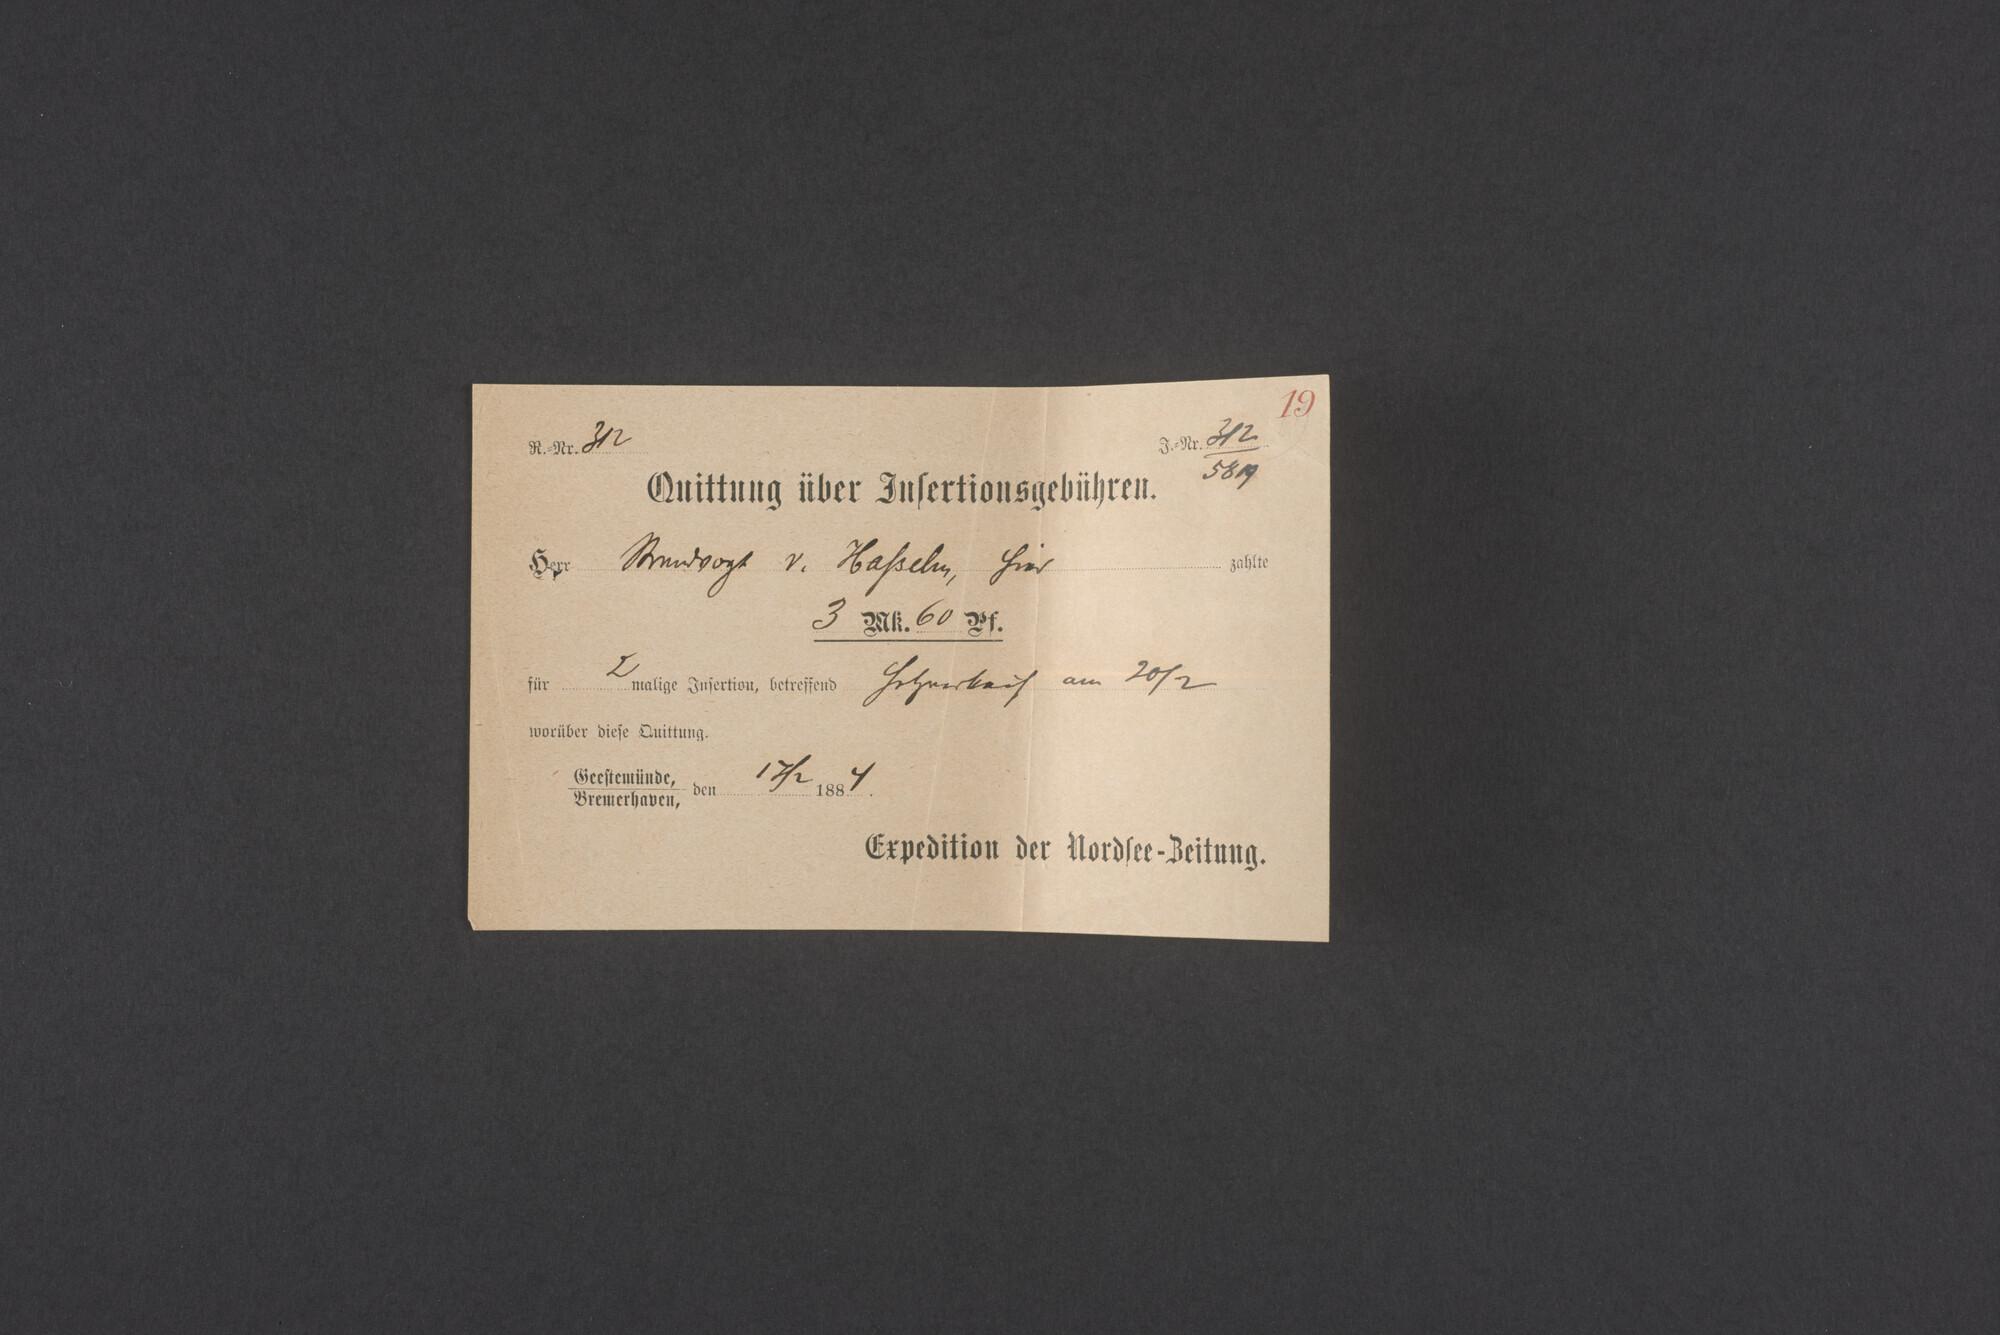 19
R.-Nr. 312
J.-Nr. 312
5819
Quittung über Insertionsgebühren.
Herr Strandvogt v. Hasseln, hier zahlte
3 Mk. 60 Pf.
für 2 malige Insertion, betreffend Holzverkauf am 20/2
worüber diese Quittung.
Geestemünde,
Bremerhaven, den 17/2 1884.
Expedition der Nordsee-Zeitung.